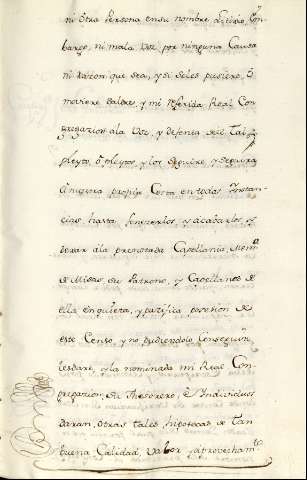 ni otra Persona en su nombre, litixio, Em-
bargo, ni mala Voz por ninguna Causa
ni razon que sea, y si se les pusiere, ó
moviere saldre, y mi referida Real Con
gregacion a la Voz, y defensa de el tal
pleyto, ó pleytos y los seguire, y seguira
á nuestra propia Costa en todas Ynstan-
cias hasta fenecerlos, y acabarlos, y
dexar a la prenotada Capellania, Memª
de Misas, su Patrono, y Capellanes de
ella en quieta, y pacifica posesion de
este Censo, y no pudiendolo Conseguir,
les dare, y la nominada mi Real Con-
gregacion, su Thesorero, é Yndividuos
daran, otras tales hipotecas de tan
buena Calidad, valor y aprovechamto